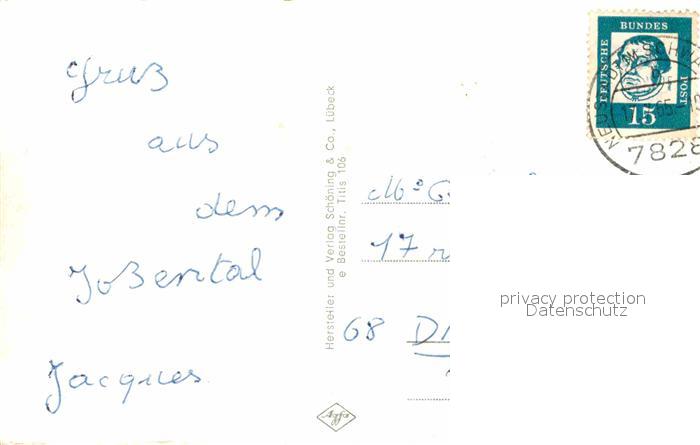 Gruß
aus
dem
Joßental
Jacques
Hersteller und Verlag Schöning & Co., Lübeck
e Bestellnr. Titis 106
Agfa
DEUTSCHE
BUNDES
POST
15
7828
17
68
privacy protection
Datenschutz